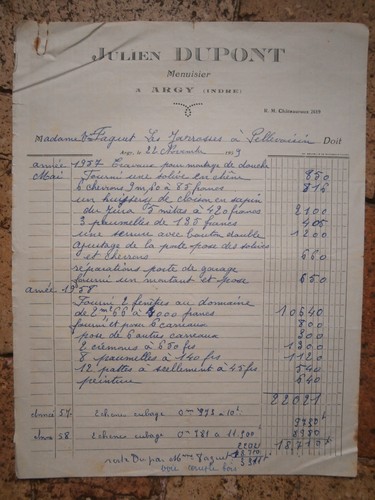 JULIEN DUPONT
Menuisier
A ARGY (INDRE)
R. M. Châteauroux
Madame Faguet Les Jarrasses à Pellevoisin Doit
Argy, le 22 Novembre 1959
année 1957 Travaux pour montage de douche
Mai Fourni une solive en chêne 850
6 chevrons 3m,80 à 85 francs 816
un huisserie de cloison en sapin
du Jura 5 mètres à 420 francs 2100
3 paumelles de 135 francs 405
une serrure avec bouton double 1200
Ajustage de la porte pose des solives
et chevrons 660
réparations porte de garage
fourni un montant et pose 650
année 1958
Fourni 2 fenêtres au domaine
de 2m²66 à 4000 francs 10640
fourni et posé 6 carreaux 800
pose de 6 autres carreaux 300
2 crémones à 650 frs 1300
8 paumelles à 140 frs 1120
12 pattes à scellement à 45 frs 540
peinture 640
22021
année 57. Echange cubage
année 58. Echange cubage 8980
18710
reste Du par Mme Faguet
voir compte bois